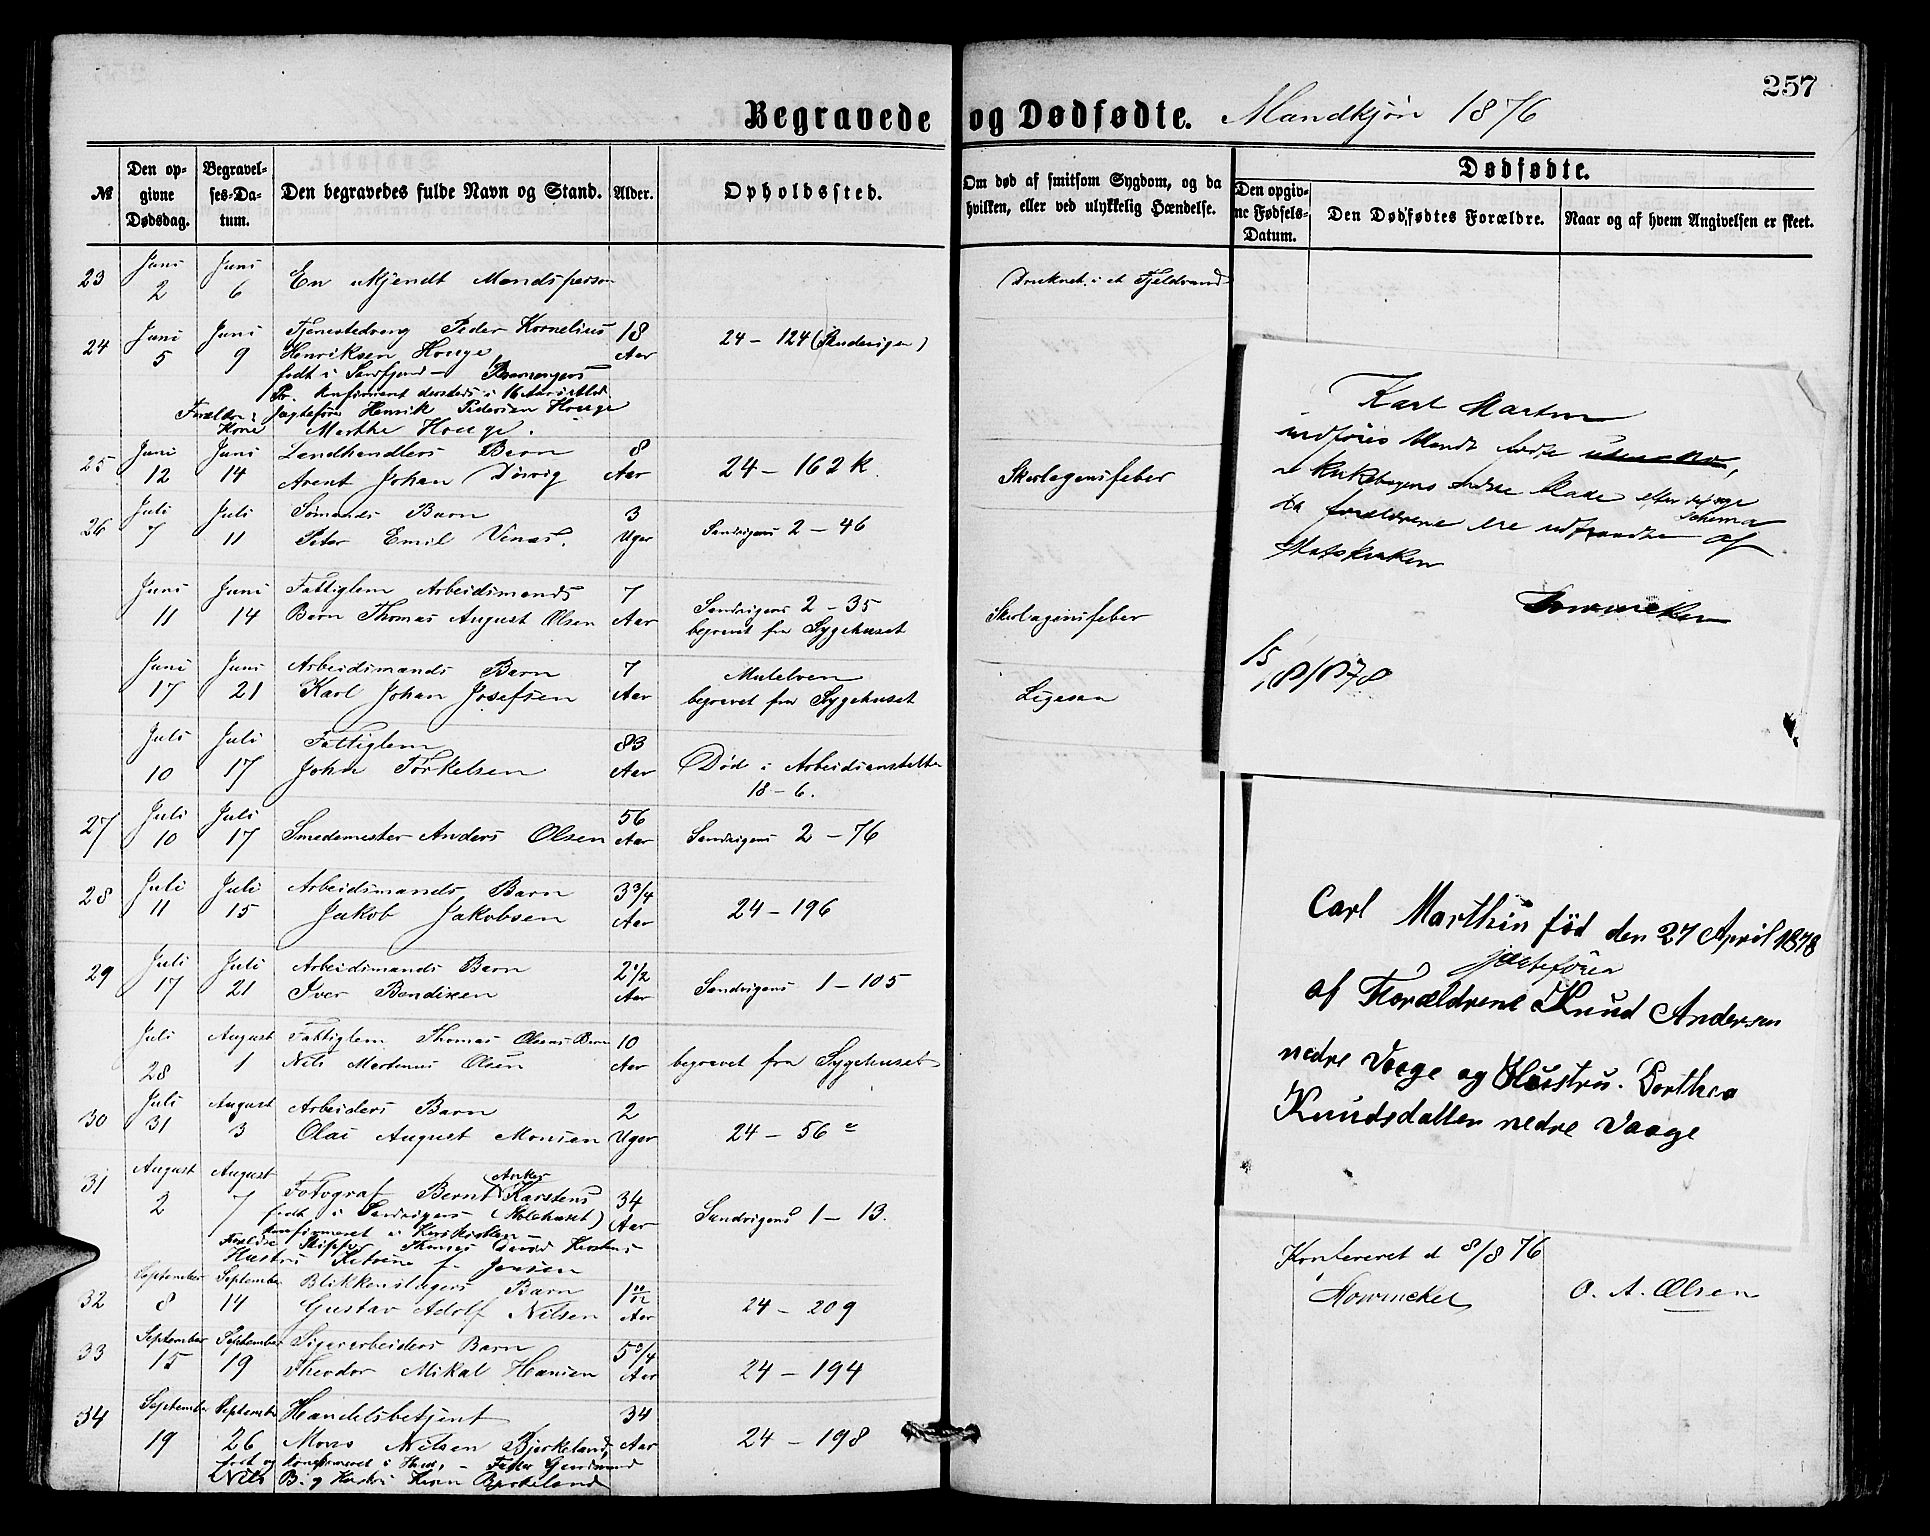 257
Begravede og Dødfødte. Mandkjøn 1876
№
Den opgivne Dødsdag.
Begravelses-Datum.
Den begravedes fulde Navn og Stand.
Alder.
Opholdssted.
Om død af smitsom Sygdom, og da hvilken, eller ved ulykkelig Hændelse.
Dødfødte.
Den opgivne Fødsels-Datum.
Den Dødfødtes Forældre.
Naar og af hvem Angivelsen er skeet.
23 Juni 2 Juni 6 En ukjendt Mandsperson Druknet i et Fjeldvand
24 Juni 5 Juni 9 Tjenestedreng Peder Kornelius 18 Aar 24 - 124
Henriksen Houge
født i Søndfjord -
Pr. konfirmeret dersteds i 16 Aars Ald.
Forældre: Jagtefører Henrik Pedersen Houge
Kone Marthe Houge.
25 Juni 12 Juni 14 Landhandlers Barn 8 Aar 24 - 162 k. Skarlagensfeber
Arent Johan
26 Juli 7 Juli 11 Sømands Barn 3 Uger Sandvigens 2 - 46
Peter Emil
Juni 11 Juni 14 Fattiglem Arbeidsmands 7 Aar Sandvigens 2 - 35 Skarlagensfeber
Barn Thomas August Olsen begravet fra Sygehuset
Juni 17 Juni 21 Arbeidsmands Barn 7 Aar Mulelven Ligesaa
Karl Johan Josefsen begravet fra Sygehuset
Juli 10 Juli 17 Fattiglem 83 Aar Død i Arbeidsanstalten
John Torkelsen 18 - 6.
27 Juli 10 Juli 17 Smedemester Anders Olsen 56 Aar Sandvigens 2 - 76
28 Juli 11 Juli 15 Arbeidsmands Barn 3 3/4 Aar 24 - 196
Jakob Jakobsen
29 Juli 17 Juli 21 Arbeidsmands Barn 2 1/2 Aar Sandvigens 1 - 105
Iver Bendixen
Juli 28 August 1 Fattiglem Thomas Olsens Barn 10 Aar begravet fra Sygehuset
Nils Martinus Olsen
30 Juli 31 August 3 Arbeiders Barn 2 Uger 24 - 56
Olai August Monsen
31 August 2 August 7 Fotograf Bernt Anker Karstens 34 Aar Sandvigens 1 - 13.
født i Sandvigens
konfirmeret i Korskirken -
Forældre Skipper Thomas Karstens
Hustru f. Jensen
32 September 8 September 14 Blikkenslagers Barn 1 10/12 Aar 24 - 209
Gustav Adolf Nilsen
33 September 15 September 19 Sigararbeiders Barn 5 3/4 Aar 24 - 194
Theodor Mikal Hansen
34 September 19 September 26 Handelsbetjent 34 Aar 24 - 198
Mons Nilsen Bjerkeland,
født og konfirmeret i - Fader Gaardmand
Nils B. og Hustru Bjerkeland
Karl Martin
indføres blandt fødte
Kirkebogens
da forældrene ere udtraadte af
Statskirken
15/8 1878
Carl Marthin född den 27 April 1878
jægtefører
af Forældrene Knud Andersen
nedre Vaage og Hustru. Dorthea
Knudsdatter nedre Vaage
Konfereret d 8/8 76
O. A. Olsen